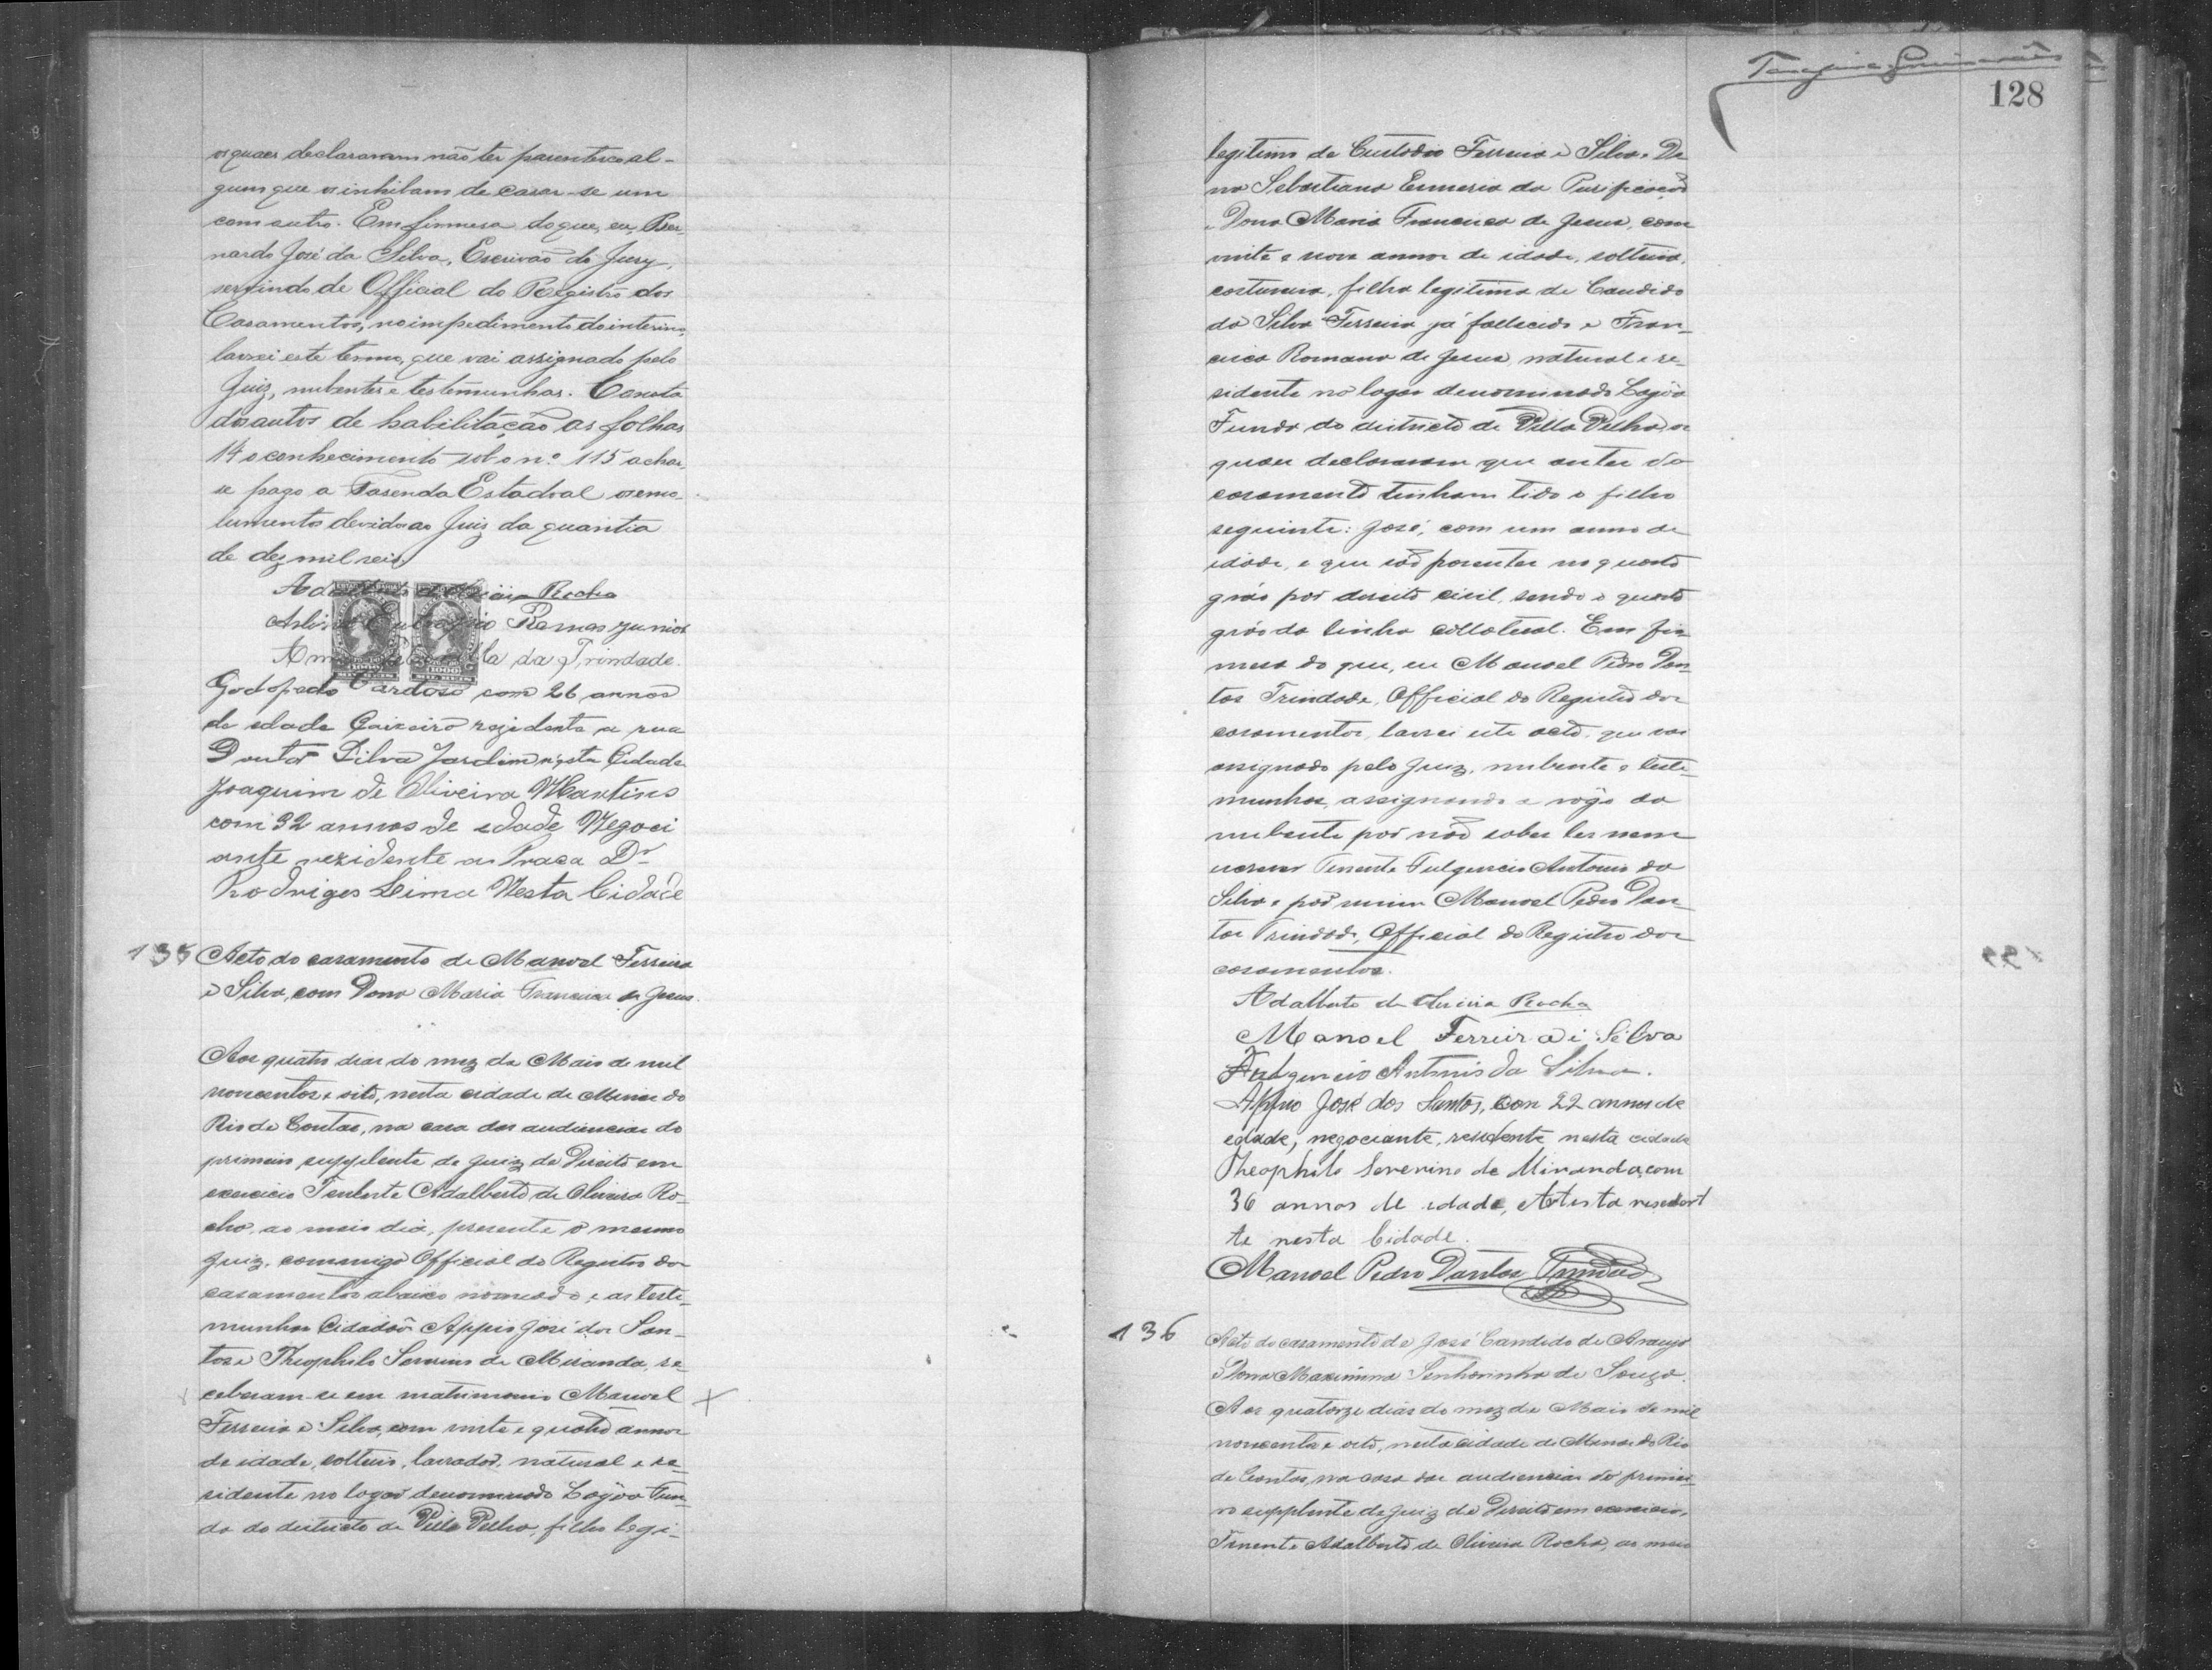 os quaes declararam não ter parentesco al-
gum que os inhibam de casar-se um
com outro. Em firmesa do que, eu, Ber-
nardo José da Silva, Escrivão do Jury,
servindo de Official do Registro dos
Casamentos, no impedimento do interino,
lavrei este termo, que vai assignado pelo
Juiz, nubentes e testemunhas. Consta
dos autos de habilitação as folhas
14 o conhecimento sob o nº 115 achar
se pago a Fasenda Estadoal os emo-
lumentos devidos ao Juiz da quantia
de dez mil reis.
Rocha
Ramos Junior
da Trindade.
Godofredo Cardoso com 26 annos
de edade Caixeiro rezidente a rua
Doutor Silva Jardim nésta Cidade
Joaquim de Oliveira Martins
com 32 annos de edade Negoci
ante rezidente a Praca Dr
Rodriges Lima Nesta Cidade
135 Acto do casamento de Manoel Ferreira
e Silva, com Dona Maria Francisca de Jesus.
Aos quatro dias do mez de Maio de mil
novecentos e oito, nesta cidade de Minas do
Rio de Contas, na casa das audiencias do
primeiro supplente de Juiz de Direito em
exercicio Tenente Adalberto de Oliveira Ro-
cha, ao meio dia, presente o mesmo
Juiz, commigo Official do Registro dos
casamentos abaixo nomeado, e as teste-
munhas Cidadãos Appio José dos San-
tos e Theophilo Severino de Miranda, re-
ceberam-se em matrimonio Manoel
Ferreira e Silva, com vinte e quatro annos
de idade, solteiro, lavrador, natural e re-
sidente no logar denominado Lagôa Fun-
da do districto de Villa Velha, filho legi-
128
legitimo de Custodio Ferreira e Silva e Do
na Sebastiana Ermeria da Purificação
e Dona Maria Francisca de Jesus, com
vinte e nove annos de idade, solteira,
costureira, filha legitima de Candido
da Silva Ferreira já fallecido e Fran-
cisca Romana de Jesus, natural e re-
sidente no logar denominado Lagôa
Funda do districto de Villa Velha, os
quaes declararam que antes do
casamento tinham tido o filho
seguinte: José, com um anno de
idade, e que são parentes no quarto
gráo por direito civil, sendo o quarto
gráo da linha collateral. Em fir-
mesa do que, eu Manoel Pedro Dan-
tas Trindade, Official do Registro dos
casamentos, lavrei este acto, que vai
assignado pelo Juiz, nubente e teste-
munhas, assignando a rôgo da
nubente por não saber ler nem
escrever Tenente Fulgencio Antonio da
Silva e por mim Manoel Pedro Dan-
tas Trindade, Official do Registro dos
casamentos.
Adalberto de Oliveira Rocha
Manoel Ferreira i Silva
Fulgencio Antonio da Silva.
Appio José dos Santos, com 22 annos de
edade, negociante, residente nesta cidade
Theophilo Severino de Miranda, com
36 annos de edade, Artista residen
te nesta Cidade.
Manoel Pedro Dantas Trindade
136 Acto do casamento de José Candido de Araujo
e Dona Maximina Senhorinha de Souza.
Aos quatorze dias do mez de Maio de mil
novecentos e oito, nesta cidade de Minas do Rio
de Contas, na casa das audiencias do primei-
ro supplente de Juiz de Direito em exercicio,
Tenente Adalberto de Oliveira Rocha, ao meio